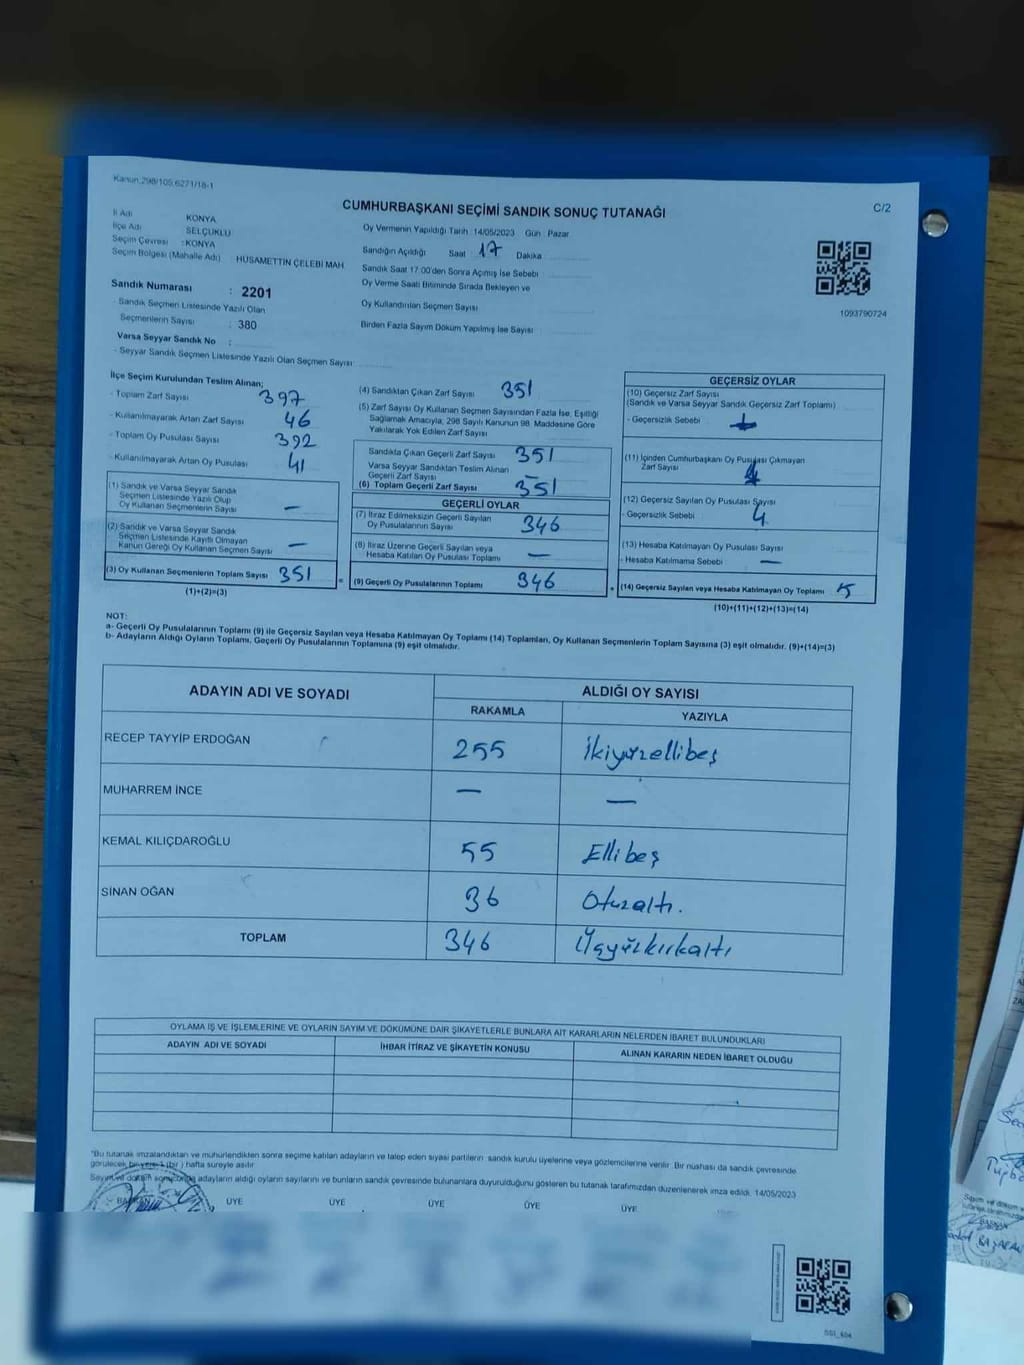 Kanun 298/105,6271/18-1
CUMHURBAŞKANI SEÇİMİ SANDIK SONUÇ TUTANAĞI
C/2
İl Adı KONYA
İlçe Adı SELÇUKLU
Seçim Çevresi : KONYA
Seçim Bölgesi (Mahalle Adı) HÜSAMETTİN ÇELEBİ MAH.
Sandık Numarası : 2201
- Sandık Seçmen Listesinde Yazılı Olan
Seçmenlerin Sayısı : 380
Varsa Seyyar Sandık No :
- Seyyar Sandık Seçmen Listesinde Yazılı Olan Seçmen Sayısı:
Oy Vermenin Yapıldığı Tarih :14/05/2023 Gün : Pazar
Sandığın Açıldığı Saat : 17 Dakika
Sandık Saat 17:00'den Sonra Açmış İse Sebebi
Oy Verme Saati Bitiminde Sırada Bekleyen ve
Oy Kullandırılan Seçmen Sayısı
Birden Fazla Sayım Döküm Yapılmış İse Sayısı :
1093790724
İlçe Seçim Kurulundan Teslim Alınan;
- Toplam Zarf Sayısı 397
- Kullanılmayarak Artan Zarf Sayısı 46
- Toplam Oy Pusulası Sayısı 392
- Kullanılmayarak Artan Oy Pusulası 41
(1) Sandık ve Varsa Seyyar Sandık
Seçmen Listesinde Yazılı Olup
Oy Kullanan Seçmenlerin Sayısı —
(2) Sandık ve Varsa Seyyar Sandık
Seçmen Listesinde Kayıtlı Olmayan
Kanun Gereği Oy Kullanan Seçmen Sayısı —
(3) Oy Kullanan Seçmenlerin Toplam Sayısı 351
(1)+(2)=(3)
(4) Sandıktan Çıkan Zarf Sayısı 351
(5) Zarf Sayısı Oy Kullanan Seçmen Sayısından Fazla İse, Eşitliği
Sağlamak Amacıyla, 298 Sayılı Kanunun 98. Maddesine Göre
Yakılarak Yok Edilen Zarf Sayısı
Sandıkta Çıkan Geçerli Zarf Sayısı 351
Varsa Seyyar Sandıktan Teslim Alınan
Geçerli Zarf Sayısı —
(6) Toplam Geçerli Zarf Sayısı 351
GEÇERLİ OYLAR
(7) İtiraz Edilmeksizin Geçerli Sayılan
Oy Pusulalarının Sayısı 346
(8) İtiraz Üzerine Geçerli Sayılan veya
Hesaba Katılan Oy Pusulası Toplamı —
= (9) Geçerli Oy Pusulalarının Toplamı 346
GEÇERSİZ OYLAR
(10) Geçersiz Zarf Sayısı
(Sandık ve Varsa Seyyar Sandık Geçersiz Zarf Toplamı)
- Geçersizlik Sebebi
(11) İçinden Cumhurbaşkanı Oy Pusulası Çıkmayan
Zarf Sayısı
(12) Geçersiz Sayılan Oy Pusulası Sayısı
- Geçersizlik Sebebi 4
(13) Hesaba Katılmayan Oy Pusulası Sayısı
- Hesaba Katılmama Sebebi —
+ (14) Geçersiz Sayılan veya Hesaba Katılmayan Oy Toplamı 5
(10)+(11)+(12)+(13)=(14)
NOT:
a- Geçerli Oy Pusulalarının Toplamı (9) ile Geçersiz Sayılan veya Hesaba Katılmayan Oy Toplamı (14) Toplamları, Oy Kullanan Seçmenlerin Toplam Sayısına (3) eşit olmalıdır. (9)+(14)=(3)
b- Adayların Aldığı Oyların Toplamı, Geçerli Oy Pusulalarının Toplamına (9) eşit olmalıdır.
ADAYIN ADI VE SOYADI ALDIĞI OY SAYISI
RAKAMLA YAZIYLA
RECEP TAYYİP ERDOĞAN 255 İkiyüzellibeş
MUHARREM İNCE — —
KEMAL KILIÇDAROĞLU 55 Ellibeş
SİNAN OĞAN 36 Otuzaltı.
TOPLAM 346 Üçyüzkırkaltı
OYLAMA İŞ VE İŞLEMLERİNE VE OYLARIN SAYIM VE DÖKÜMÜNE DAİR ŞİKAYETLERLE BUNLARA AİT KARARLARIN NELERDEN İBARET BULUNDUKLARI
ADAYIN ADI VE SOYADI İHBAR İTİRAZ VE ŞİKAYETİN KONUSU ALINAN KARARIN NEDEN İBARET OLDUĞU
*Bu tutanak imzalandıktan ve mühürlendikten sonra seçime katılan adayların ve talep eden siyasi partilerin sandık kurulu üyelerine veya gözlemcilerine verilir. Bir nüshası da sandık çevresinde
görülecek bir yere 1 (bir) hafta süreyle asılır.
Sayım ve döküm sonucunda adayların aldığı oyların sayısını ve bunların sandık çevresinde bulunanlara duyurulduğunu gösteren bu tutanak tarafımızdan düzenlenerek imza edildi. 14/05/2023
BAŞKAN ÜYE ÜYE ÜYE ÜYE ÜYE